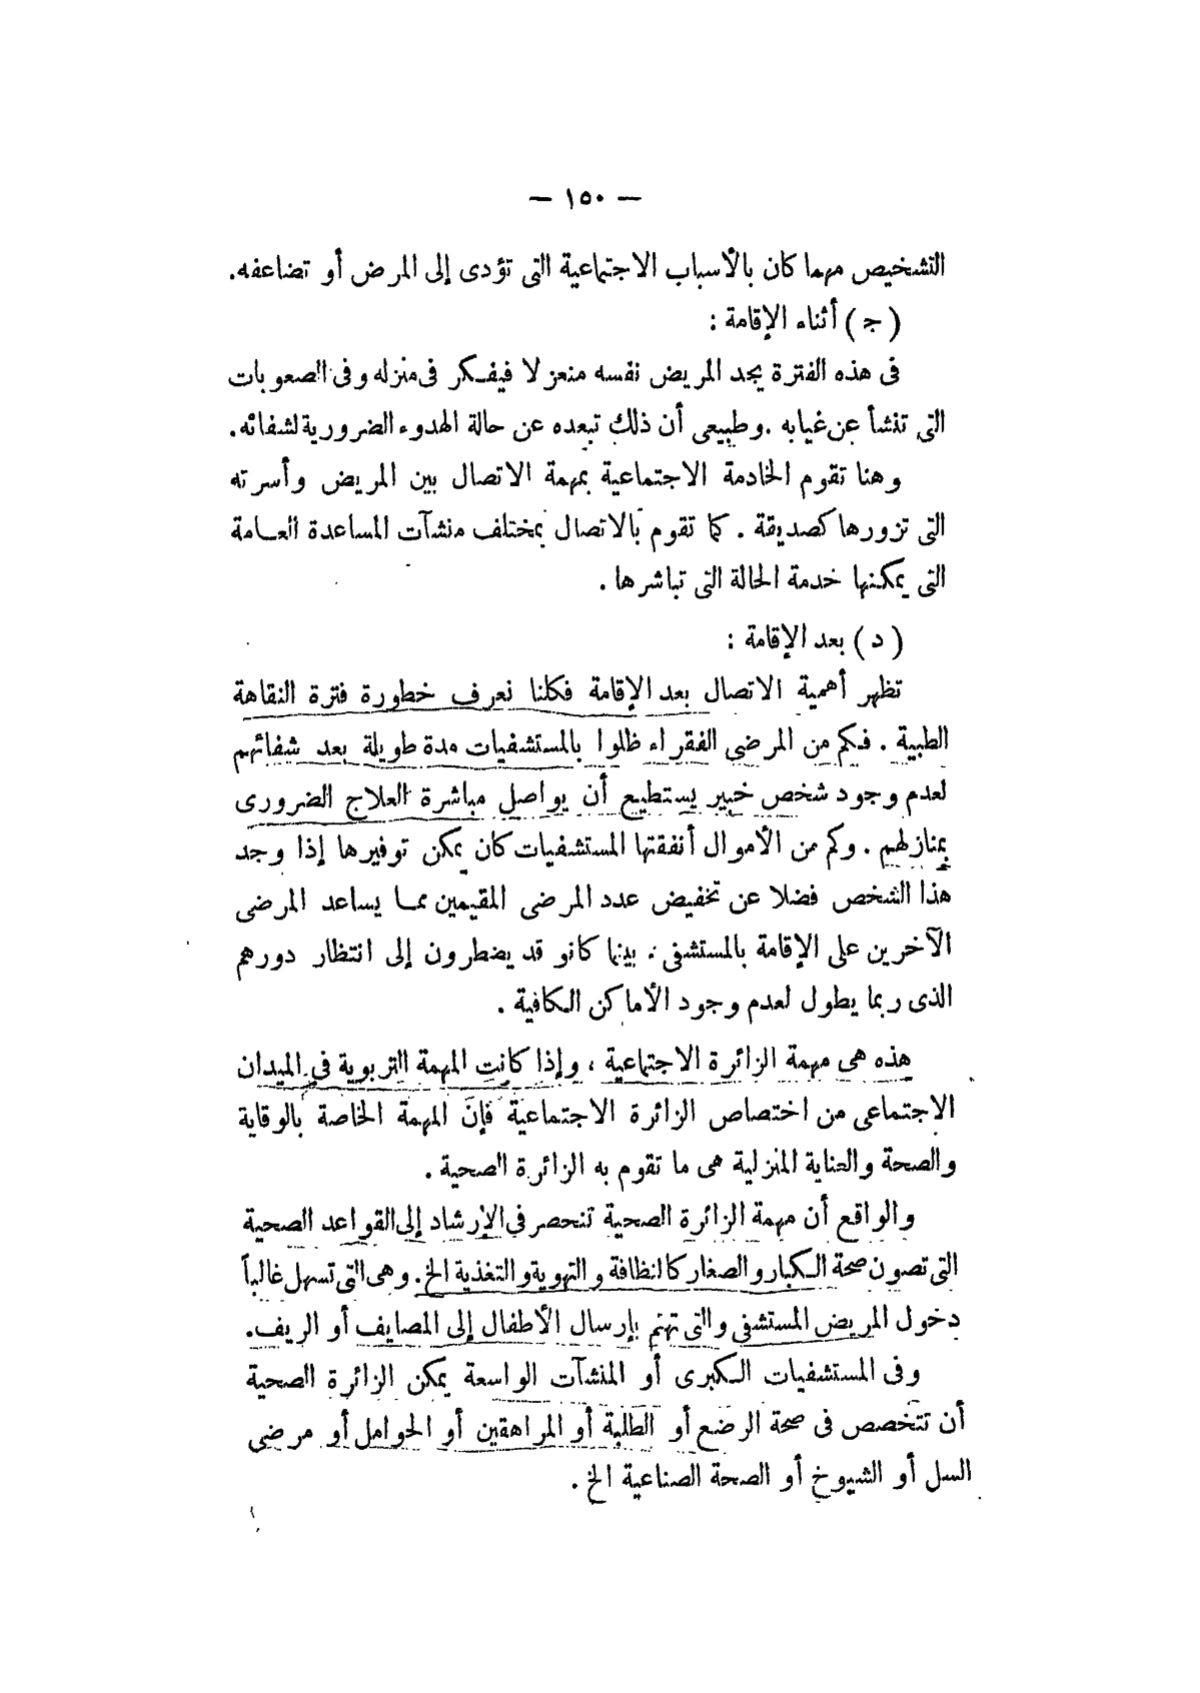 — ١٥٠ —
التشخيص مهما كان بالأسباب الاجتماعية التى تؤدى إلى المرض أو تضاعفه.
( ج ) أثناء الإقامة :
فى هذه الفترة يجد المريض نفسه منعزلا فيفكر فى منزله وفى الصعوبات
التى تنشأ عن غيابه . وطبيعى أن ذلك تبعده عن حالة الهدوء الضرورية لشفائه.
وهنا تقوم الخادمة الاجتماعية بمهمة الاتصال بين المريض وأسرته
التى تزورها كصديقة . كما تقوم بالاتصال بمختلف منشآت المساعدة العامة
التى يمكنها خدمة الحالة التى تباشرها .
( د ) بعد الإقامة :
تظهر أهمية الاتصال بعد الإقامة فكلنا نعرف خطورة فترة النقاهة
الطبية . فكم من المرضى الفقراء ظلوا بالمستشفيات مدة طويلة بعد شفائهم
لعدم وجود شخص خبير يستطيع أن يواصل مباشرة العلاج الضرورى
بمنازلهم . وكم من الأموال أنفقتها المستشفيات كان يمكن توفيرها إذا وجد
هذا الشخص فضلا عن تخفيض عدد المرضى المقيمين مما يساعد المرضى
الآخرين على الإقامة بالمستشفى . بينما كانو قد يضطرون إلى انتظار دورهم
الذى ربما يطول لعدم وجود الأماكن الكافية .
هذه هى مهمة الزائرة الاجتماعية ، وإذا كانت المهمة التربوية في الميدان
الاجتماعى من اختصاص الزائرة الاجتماعية فإن المهمة الخاصة بالوقاية
والصحة والعناية المنزلية هى ما تقوم به الزائرة الصحية .
والواقع أن مهمة الزائرة الصحية تنحصر في الإرشاد إلى القواعد الصحية
التى تصون صحة الكبار والصغار كالنظافة والتهوية والتغذية الخ. وهى التى تسهل غالباً
دخول المريض المستشفى والتى تهتم بإرسال الأطفال إلى المصايف أو الريف.
وفى المستشفيات الكبرى أو المنشآت الواسعة يمكن الزائرة الصحية
أن تتخصص فى صحة الرضع أو الطلبة أو المراهقين أو الحوامل أو مرضى
السل أو الشيوخ أو الصحة الصناعية الخ .